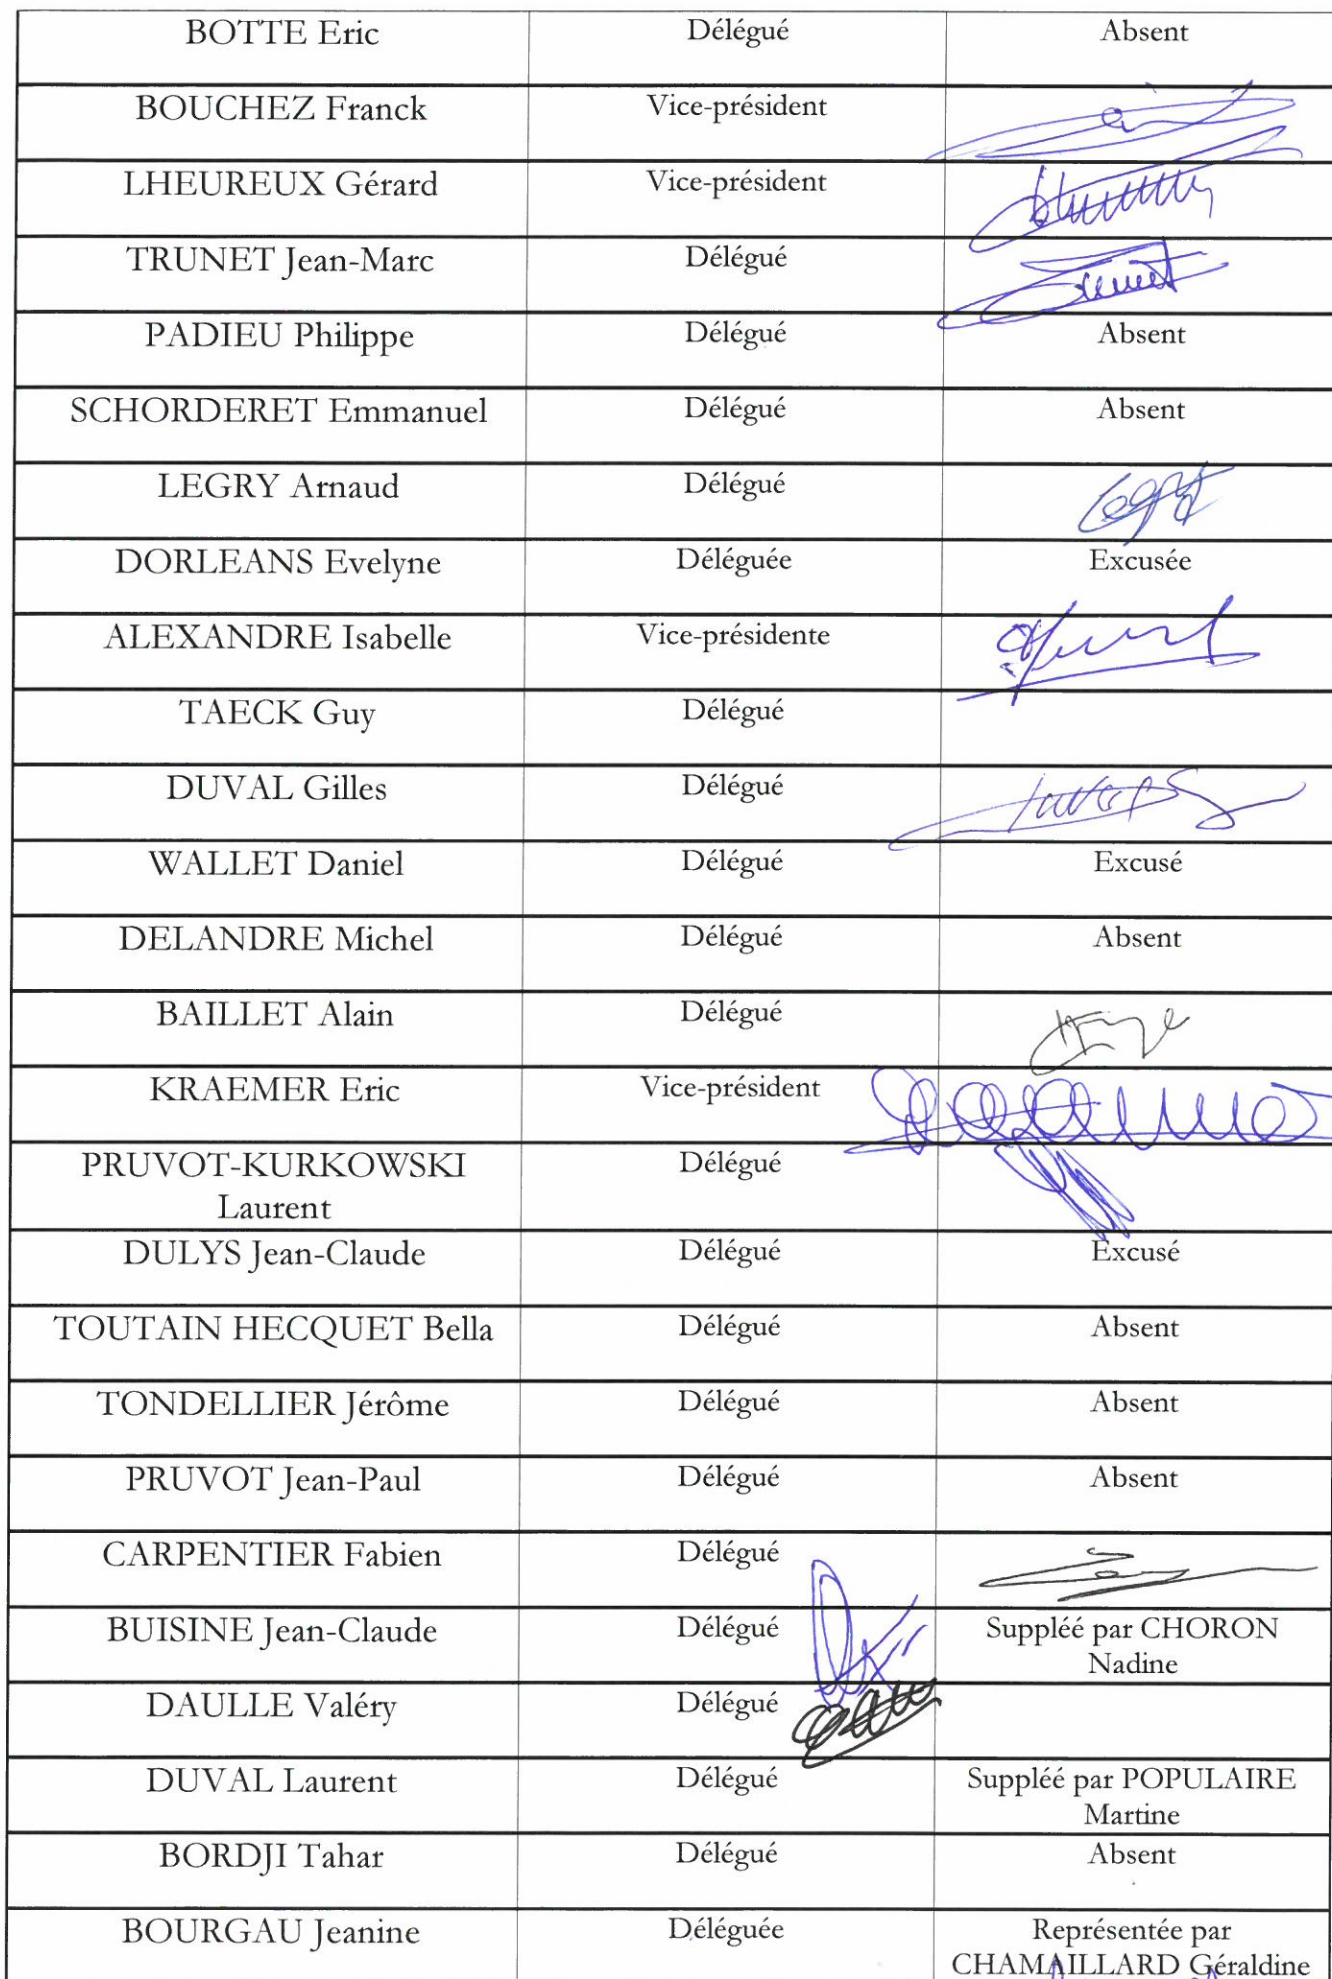 BOTTE Eric Délégué Absent
BOUCHEZ Franck Vice-président
LHEUREUX Gérard Vice-président
TRUNET Jean-Marc Délégué
PADIEU Philippe Délégué Absent
SCHORDERET Emmanuel Délégué Absent
LEGRY Arnaud Délégué
DORLEANS Evelyne Déléguée Excusée
ALEXANDRE Isabelle Vice-présidente
TAECK Guy Délégué
DUVAL Gilles Délégué
WALLET Daniel Délégué Excusé
DELANDRE Michel Délégué Absent
BAILLET Alain Délégué
KRAEMER Eric Vice-président
PRUVOT-KURKOWSKI Délégué
Laurent
DULYS Jean-Claude Délégué Excusé
TOUTAIN HECQUET Bella Délégué Absent
TONDELLIER Jérôme Délégué Absent
PRUVOT Jean-Paul Délégué Absent
CARPENTIER Fabien Délégué
BUISINE Jean-Claude Délégué Suppléé par CHORON
Nadine
DAULLE Valéry Délégué
DUVAL Laurent Délégué Suppléé par POPULAIRE
Martine
BORDJI Tahar Délégué Absent
BOURGAU Jeanine Déléguée Représentée par
CHAMAILLARD Géraldine